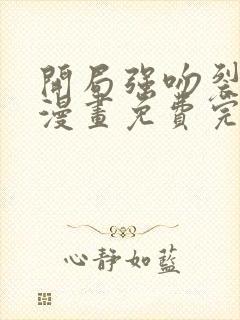 開局強吻裂
漫畫免費完
心靜如藍